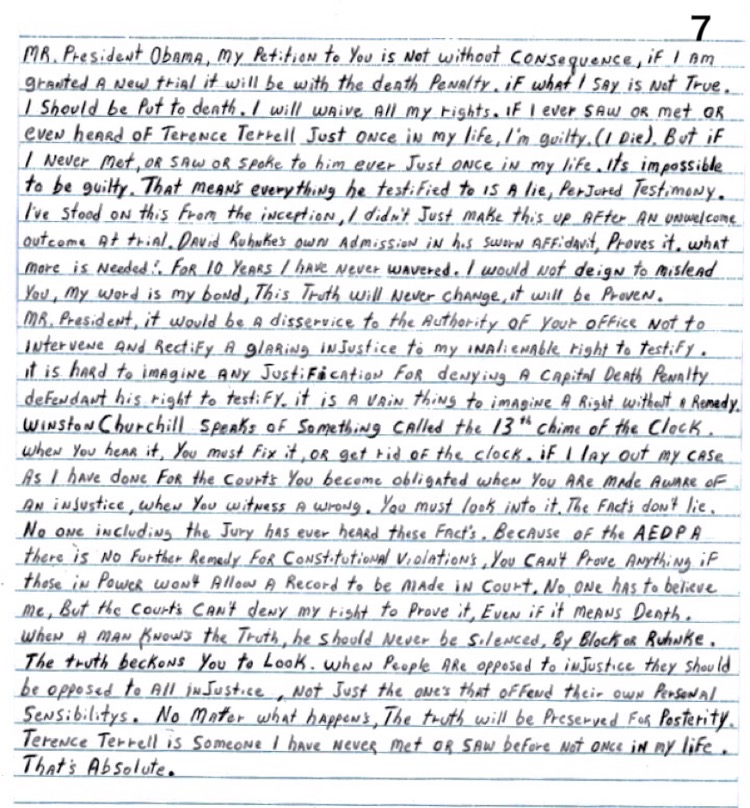 7
MR. President Obama, My Petition to You is Not without Consequence, if I am
granted a New trial it will be with the death Penalty. if what I say is Not True.
I Should be Put to death. I will waive All my rights. If I ever saw or met or
even heard of Terence Terrell Just once in my life, I'm guilty. (I Die). But if
I Never Met, or saw or spoke to him ever Just once in my life. It's impossible
to be guilty. That mean's everything he testified to is a lie, Perjured Testimony.
I've stood on this from the inception, I didn't Just make this up after an unwelcome
outcome at trial. David Ruhnke's own Admission in his sworn Affidavit, Proves it. what
more is Needed!. For 10 Years I have Never wavered. I would not deign to mislead
You, My word is my bond, This Truth will Never change, it will be Proven.
MR. President, it would be a disservice to the Authority of your office Not to
intervene and Rectify a glaring inJustice to my inalienable right to testify.
it is hard to imagine any Justification for denying a Capital Death Penalty
defendant his right to testify. it is a vain thing to imagine a Right without a Remedy.
Winston Churchill speaks of Something called the 13th chime of the Clock.
when You hear it, You must Fix it, or get rid of the clock. if I lay out my case
As I have done for the courts You become obligated when You are made aware of
an inJustice, when You witness a wrong. You must look into it. The Fact's don't lie.
No one including the Jury has ever heard these Fact's. Because of the AEDPA
there is No Further Remedy for Constitutional Violation's, You Can't Prove Anything if
those in Power won't Allow a Record to be made in Court. No one has to believe
me, But the Court's Can't deny my right to Prove it, Even if it means Death.
When a man Know's the Truth, he should Never be Silenced, By Block or Ruhnke.
The truth beckons You to Look. when People are opposed to inJustice they should
be opposed to All inJustice, Not Just the one's that offend their own Personal
Sensibilitys. No Matter what happen's, The truth will be Preserved For Posterity.
Terence Terrell is Someone I have Never met or saw before not once in my life.
That's Absolute.